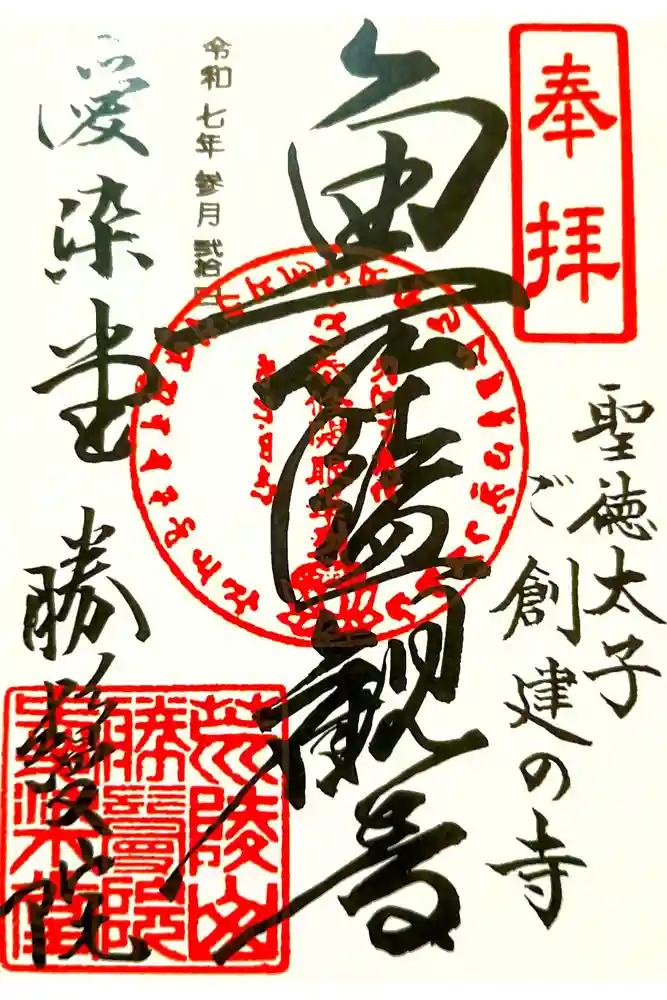 奉拝
聖徳太子
ご創建の寺
魚籃観音
令和七年参月弐拾
愛染堂 勝鬘院
荒陵山
勝鬘院
愛染堂